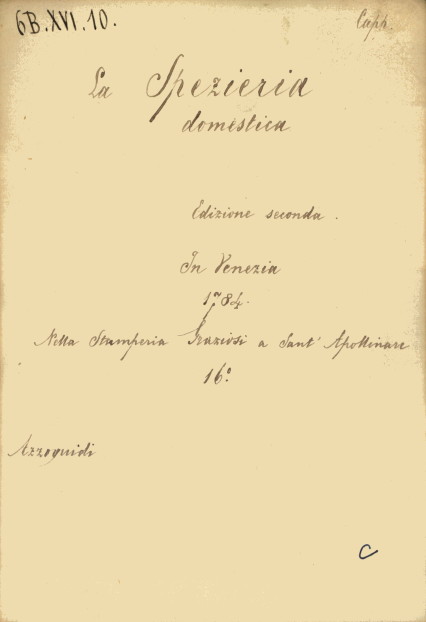 6B.XVI.10.
Capp.
La Spezieria
domestica
Edizione seconda.
In Venezia
1784.
Nella Stamperia Graziosi a Sant' Apollinare
16°.
Azzoguidi
C